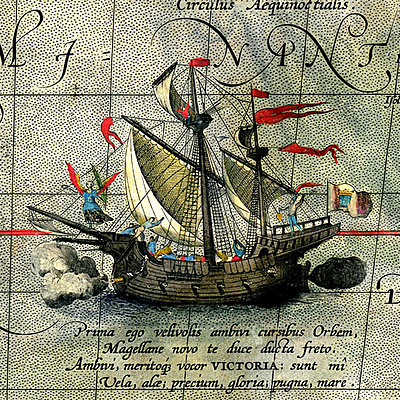 Circulus Aequinoctialis.
M A - N A N T
Prima ego velivolis ambivi cursibus Orbem,
Magellane novo te duce ducta freto.
Ambivi, meritoq; vocor VICTORIA: sunt mi
Vela, alæ; precium, gloria; pugna, mare.